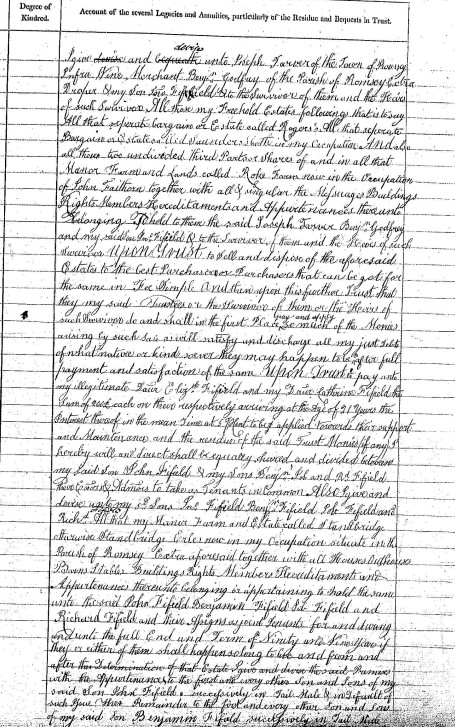 Degree of
Kindred.
Account of the several Legacies and Annuities, particularly of the Residue and Bequests in Trust.
devise
I give and unto Joseph Tarver of the Town of Romsey
Infra Wine Merchant Benjn Godfrey of the Parish of Romsey Extra
& my Son Jno Fifield & to the Survivor of them and the Heirs
of such Survivor All those my Freehold Estates following that is to say
All that separate bargain or Estate called Rogers's All that separate
Bargain or Estate called Saunders's both in my Occupation And also
all those two undivided third Parts or Shares of and in all that
Manor Farm and Lands called Roke Farm now in the Occupation
of John Faithorn together with all & singular the Messuages Buildings
Rights Members Hereditaments and Appurtenances thereunto
belonging To hold to them the said Joseph Tarver Benjn Godfrey
and my said Son Jno Fifield & to the Survivor of them and the Heirs of such
Survivor Upon Trust to Sell and dispose of the aforesaid
Estates to the best Purchaser or Purchasers that can be got for
the same in Fee Simple And then upon this further Trust that
they my said Trustees or the Survivor of them or the Heirs of
such Survivor do and shall in the first Place pay and apply so much of the Monies
arising by such Sale as will satisfy and discharge all my just Debts
of what nature or kind soever they may happen to be & after full
payment and satisfaction of the same Upon Trust to pay unto
my illegitimate Daur Elizth Fifield and my Daur Catherine Fifield the
Sum of each on their respectively arriving at the Age of 21 Years the
Interest thereof in the mean Time to be applied towards their support
and Maintenance and the residue of the said Trust Monies (if any) I
hereby will and direct shall be equally shared and divided between
my said Son John Fifield & my Sons Benjn Job and Rd Fifield
their Exors & Admors to take as Tenants in Common Also I give and
devise unto my sd Sons Jno Fifield Benjn Fifield Job Fifield and
Richd All that my Manor Farm and Estate called Stanbridge
otherwise Standbridge Erles now in my Occupation situate in the
Parish of Romsey Extra aforesaid together with all Houses Outhouses
Barns Stables Buildings Rights Members Hereditaments and
Appurtenances thereunto belonging or appertaining to hold the same
unto the said John Fifield Benjamin Fifield Job Fifield and
Richard Fifield and their Assigns as joint Tenants for and during
and unto the full End and Term of Ninety and Nine Years if
they or either of them shall happen so long to live and from and
after the Determination of that Estate I give and devise the said Premises
with the Appurtenances to the first and every other Son and Sons of my
said Son John Fifield successively in Tail Male & in Default of
such Issue Then Remainder to the first and every other Son and Sons
of my said Son Benjamin Fifield successively in Tail Male